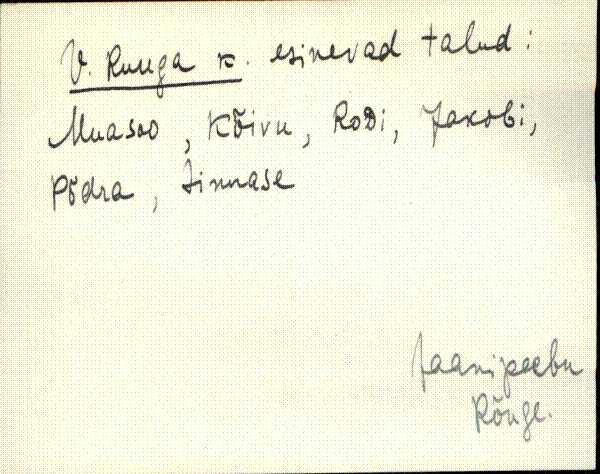 V. Ruuga k. esinevad talud:
Muasoo, Kõivu, Rodi, Jakobi,
Põdra, Linnase
Jaanipeebu
Rõuge.